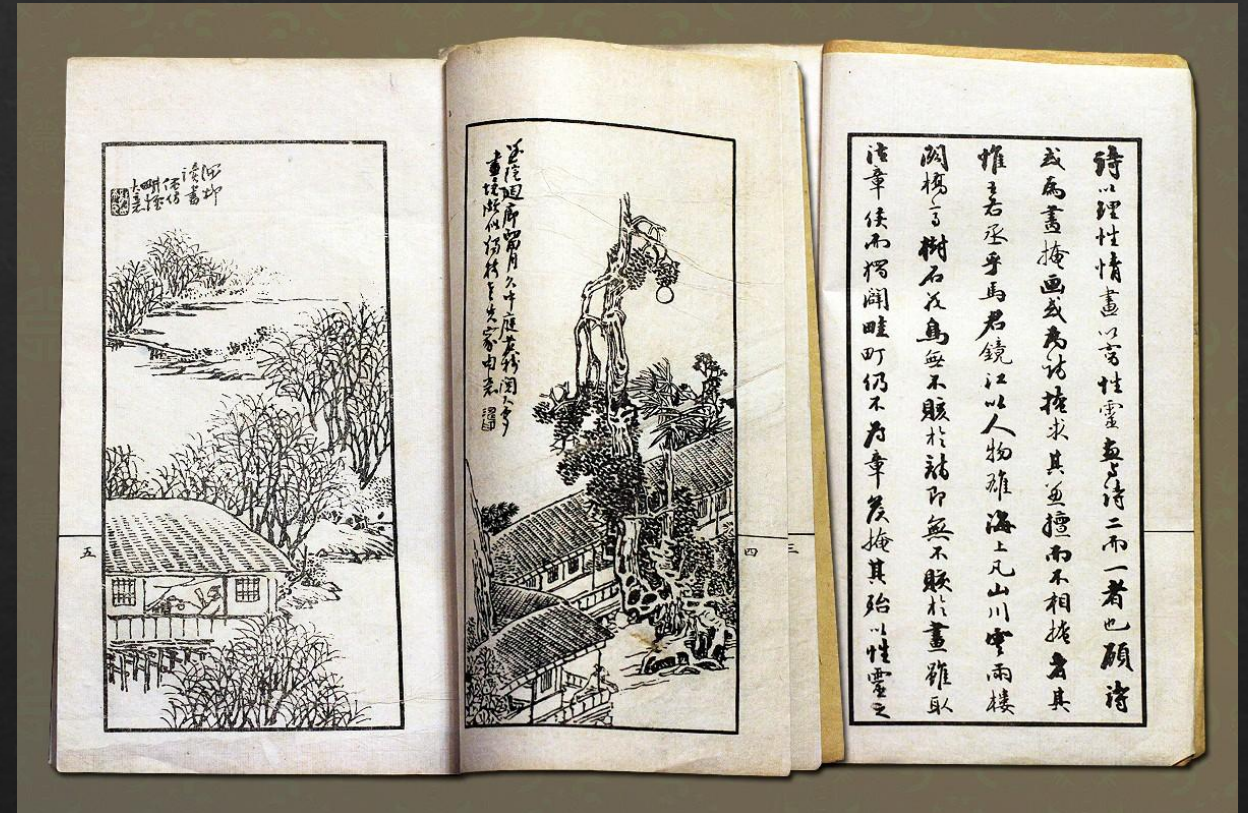 詩以理性情畫以寫性靈畫与詩二而一者也顧詩
或為畫掩画或為詩掩求其兼擅而不相掩者其
惟王右丞乎馬君鏡江以人物雄海上凡山川雲雨樓
閣橋亭樹石花鳥無不賅於詩即無不賅於畫雖取
法章侯而獨闢畦町仍不為章矦掩其殆以性靈之
三
深院迴廊留月久中庭老樹閱人多
畫境似
四
深柳
讀書
五